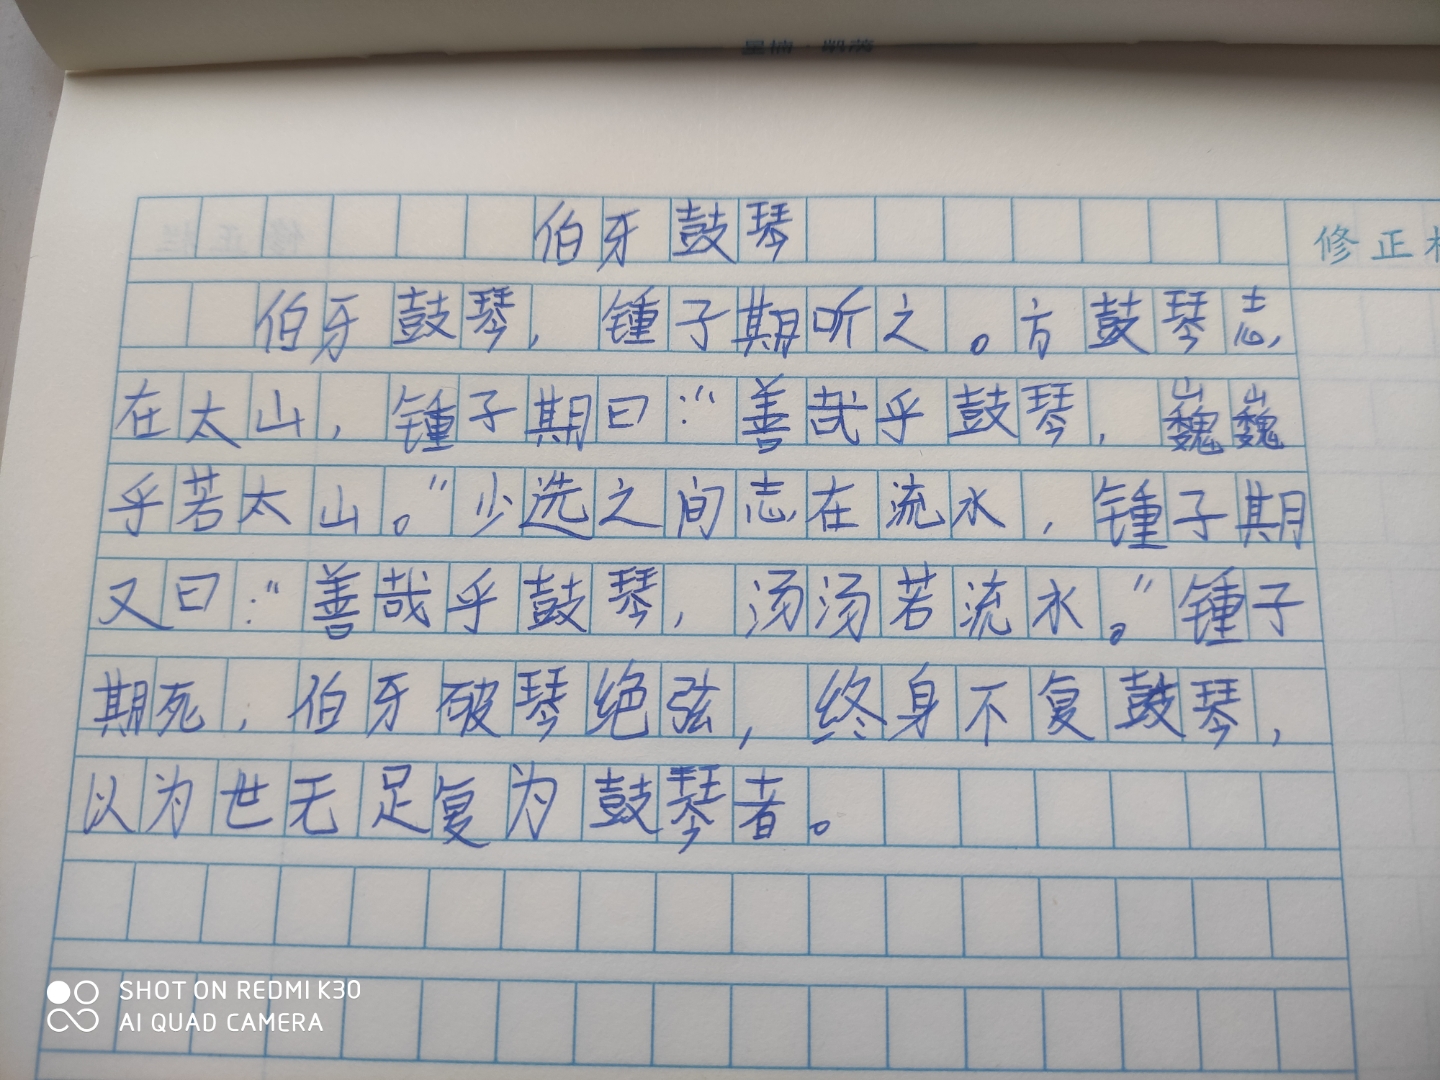 伯牙鼓琴
修正
伯牙鼓琴,锺子期听之。方鼓琴志
在太山,锺子期曰:“善哉乎鼓琴,巍巍
乎若太山。”少选之间志在流水,锺子期
又曰:“善哉乎鼓琴,汤汤若流水。”锺子
期死,伯牙破琴绝弦,终身不复鼓琴,
以为世无足复为鼓琴者。
SHOT ON REDMI K30
AI QUAD CAMERA